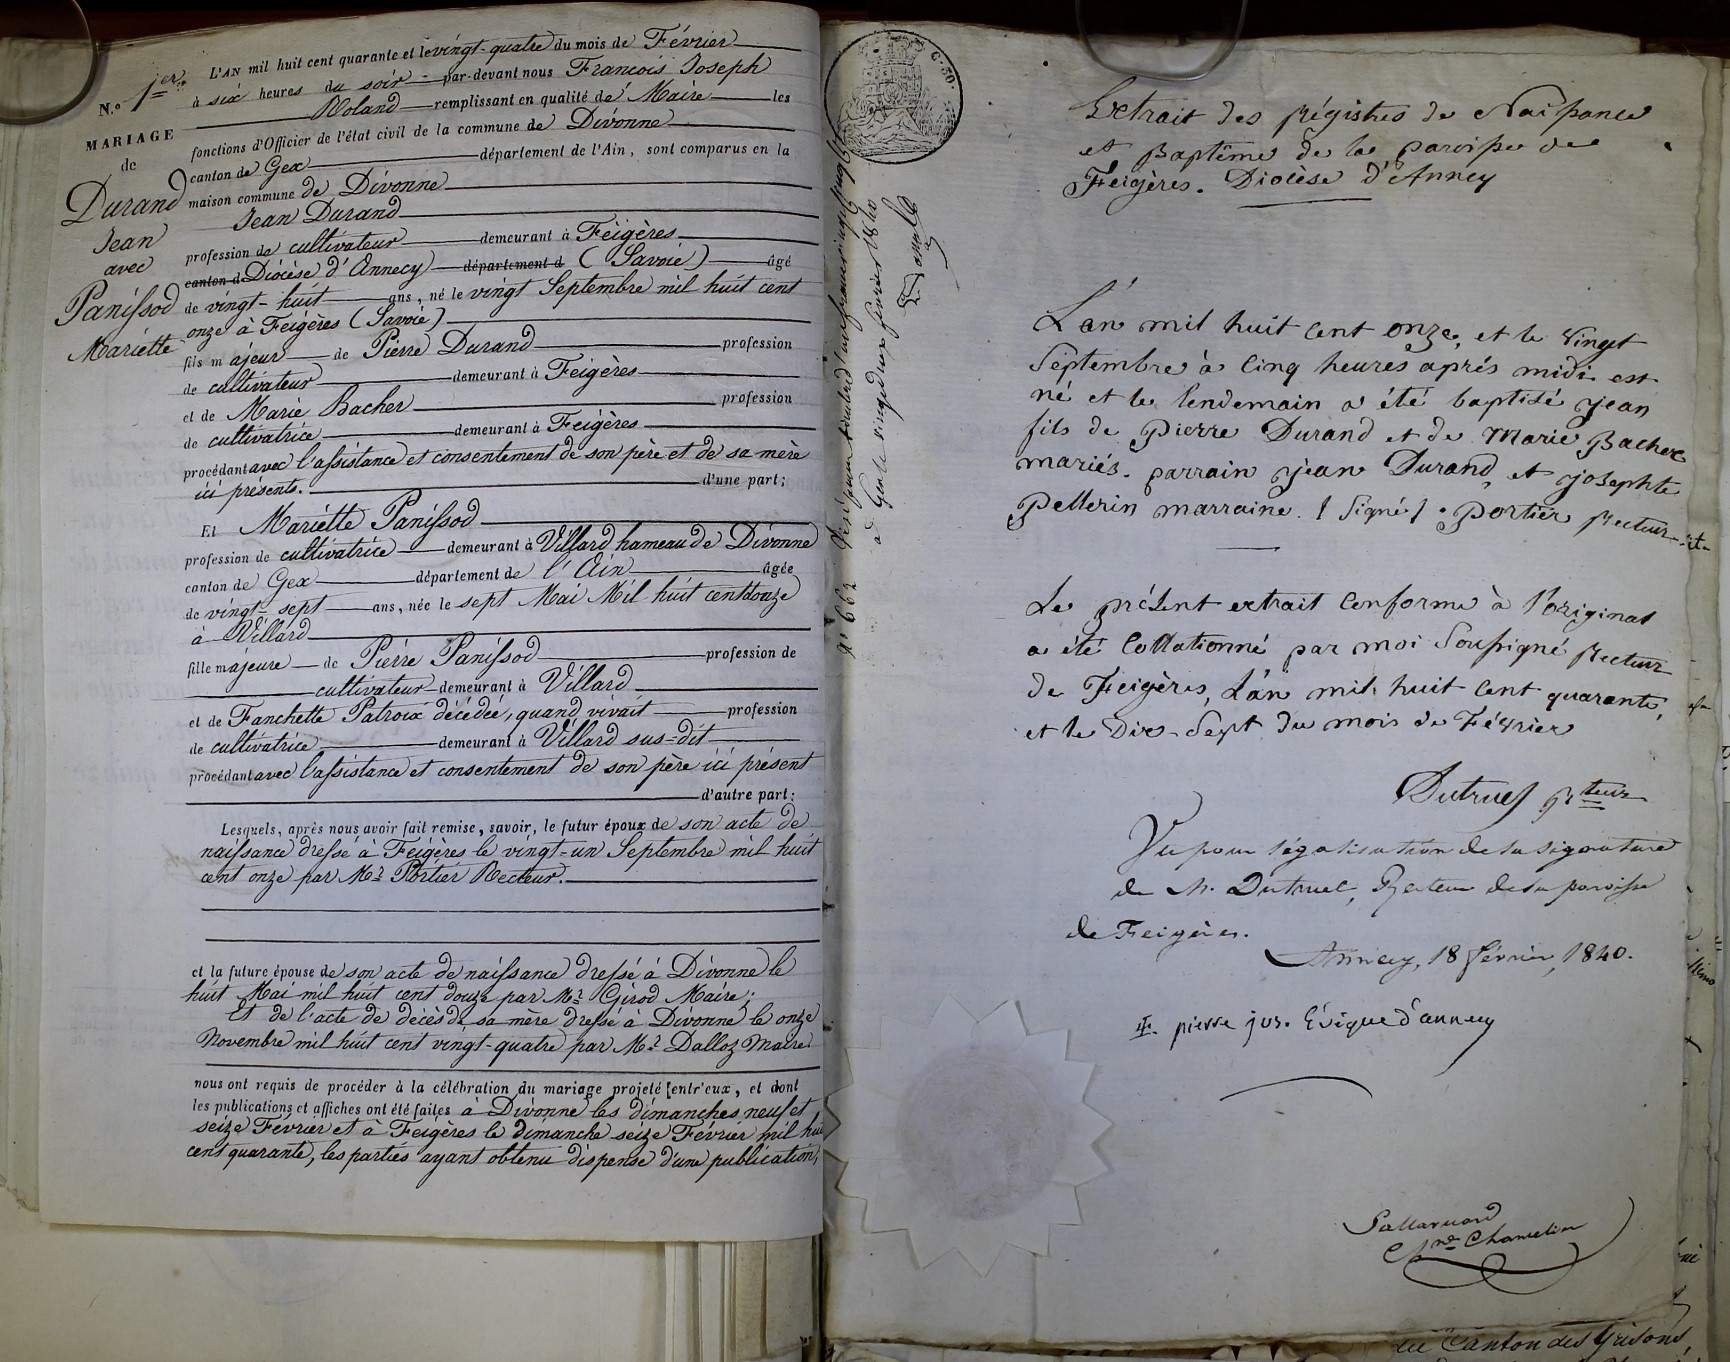 N.o 1er.
MARIAGE
de
Durand
Jean
avec
Panissod
Mariette
L'AN mil huit cent quarante et le vingt-quatre du mois de Février
à six heures du soir par-devant nous François Joseph
Roland remplissant en qualité de Maire les
fonctions d'Officier de l'état civil de la commune de Divonne
canton de Gex département de l'Ain, sont comparus en la
maison commune de Divonne
Jean Durand
profession de cultivateur demeurant à Feigères
canton d Diocèse d'Annecy département d (Savoie) âgé
de vingt-huit ans, né le vingt Septembre mil huit cent
onze à Feigères (Savoie)
fils majeur de Pierre Durand profession
de cultivateur demeurant à Feigères
et de Marie Bacher profession
de cultivatrice demeurant à Feigères
procédant avec l'assistance et consentement de son père et de sa mère
ici présents. d'une part;
Et Mariette Panissod
profession de cultivatrice demeurant à Villard hameau de Divonne
canton de Gex département de l'Ain âgée
de vingt-sept ans, née le sept Mai Mil huit cent douze
à Villard
fille majeure de Pierre Panissod profession de
cultivateur demeurant à Villard
et de Fanchette Patroix décédée, quand vivait profession
de cultivatrice demeurant à Villard sus-dit
procédant avec l'assistance et consentement de son père ici présent
d'autre part:
Lesquels, après nous avoir fait remise, savoir, le futur époux de son acte de
naissance dressé à Feigères le vingt-un Septembre mil huit
cent onze par Mr Portier Recteur.
et la future épouse de son acte de naissance dressé à Divonne le
huit Mai mil huit cent douze par Mr Girod Maire;
Et de l'acte de décès de sa mère dressé à Divonne le onze
Novembre mil huit cent vingt-quatre par Mr Dalloz Maire
nous ont requis de procéder à la célébration du mariage projeté entr'eux, et dont
les publications et affiches ont été faites à Divonne les dimanches neuf et
seize Février et à Feigères le dimanche seize Février mil hui
cent quarante, les parties ayant obtenu dispense d'une publication,
C. 30.
No 662
à Gex le vingt deux février 1840
Extrait des régistres de Naissance
et Baptême de la paroisse de
Feigères. Diocèse d'Annecy
L'an mil huit cent onze, et le vingt
Septembre à cinq heures après midi est
né et le lendemain a été baptisé jean
fils de Pierre Durand et de Marie Bacher
mariés. parrain jean Durand, et josephte
Pellerin marraine. / Signé / Portier Recteur
Le présent extrait conforme à l'original
a été collationné par moi soussigné Recteur
de Feigères, L'an mil huit cent quarante,
et le Dix-Sept du mois de Février
Dutruel Rteur
Vu pour légalisation de la signature
de M. Dutruel, Recteur de la paroisse
de Feigères.
Annecy, 18 février, 1840.
pierre jos. Evêque d'annecy
Sallavuard
Cne Chancelier
du Canton des Grisons,